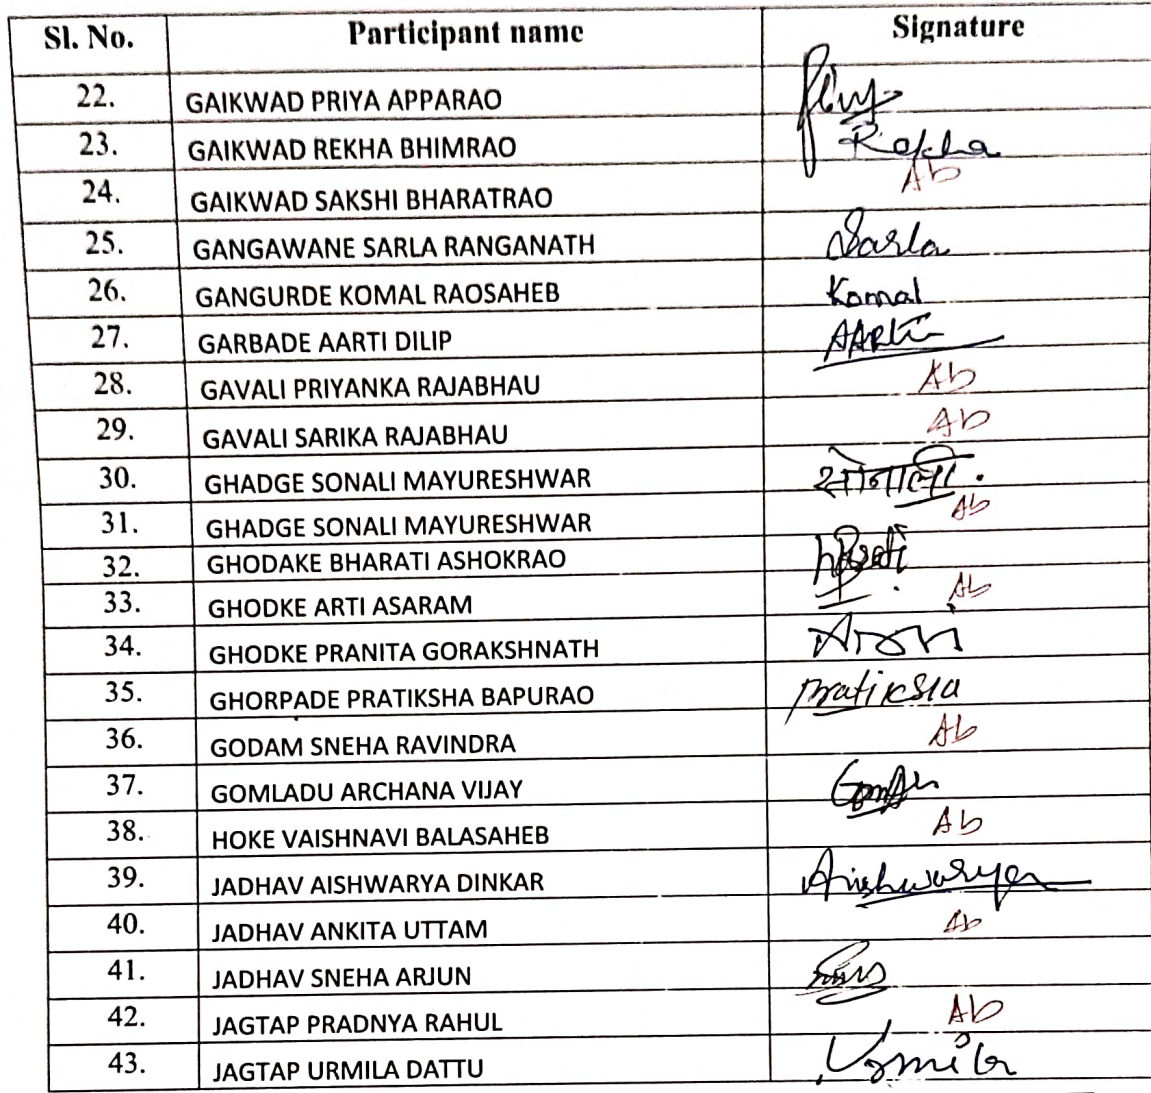 Sl. No. Participant name Signature
22. GAIKWAD PRIYA APPARAO
23. GAIKWAD REKHA BHIMRAO Rekha
24. GAIKWAD SAKSHI BHARATRAO Ab
25. GANGAWANE SARLA RANGANATH Sarla
26. GANGURDE KOMAL RAOSAHEB Komal
27. GARBADE AARTI DILIP AARti
28. GAVALI PRIYANKA RAJABHAU Ab
29. GAVALI SARIKA RAJABHAU Ab
30. GHADGE SONALI MAYURESHWAR सोनाली.
31. GHADGE SONALI MAYURESHWAR Ab
32. GHODAKE BHARATI ASHOKRAO
33. GHODKE ARTI ASARAM Ab
34. GHODKE PRANITA GORAKSHNATH
35. GHORPADE PRATIKSHA BAPURAO
36. GODAM SNEHA RAVINDRA Ab
37. GOMLADU ARCHANA VIJAY
38. HOKE VAISHNAVI BALASAHEB Ab
39. JADHAV AISHWARYA DINKAR Aishwarya
40. JADHAV ANKITA UTTAM Ab
41. JADHAV SNEHA ARJUN
42. JAGTAP PRADNYA RAHUL Ab
43. JAGTAP URMILA DATTU Urmila